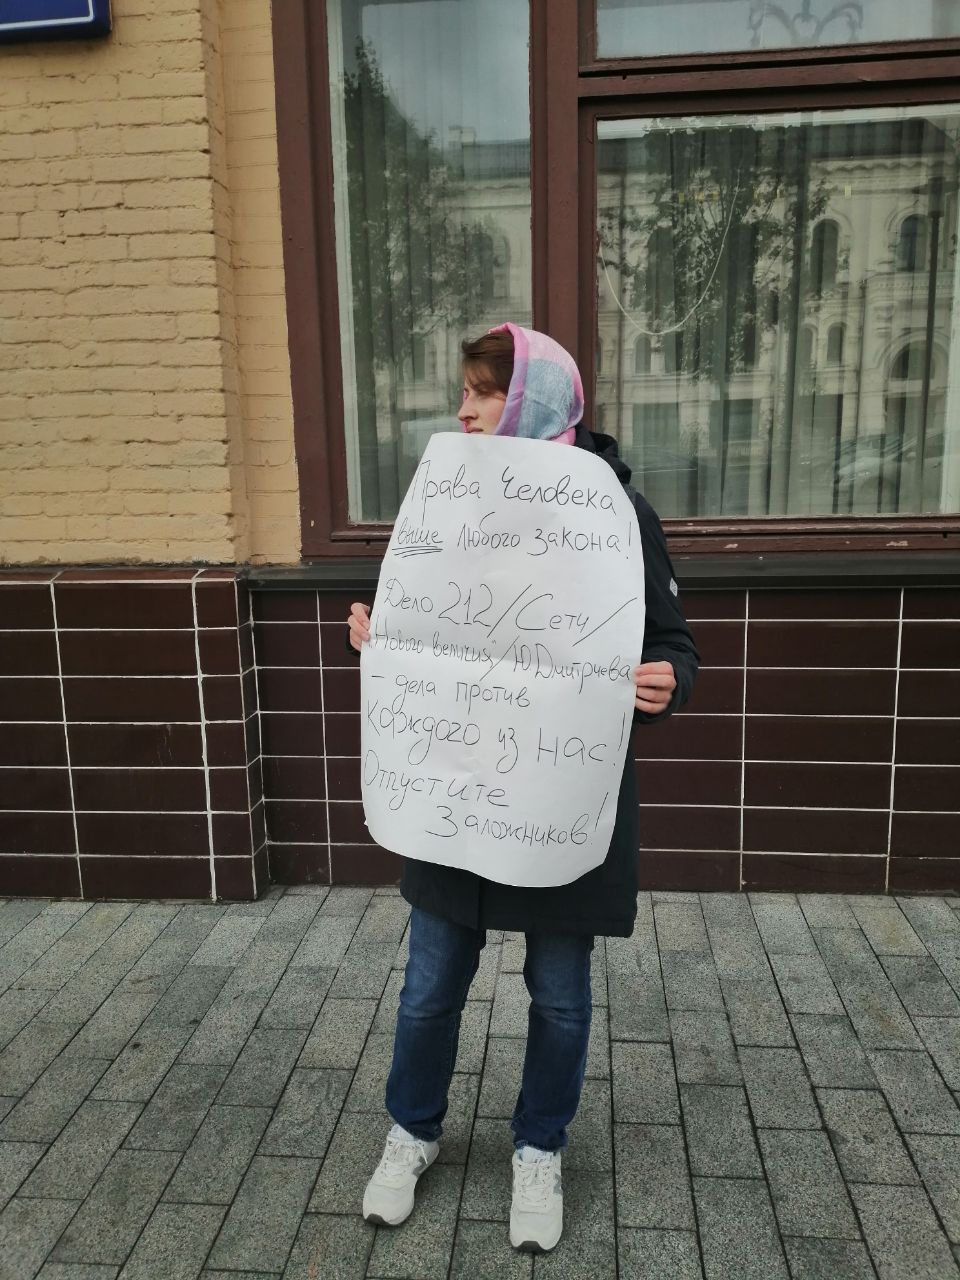 Права Человека
выше любого закона!
Дело 212/Сети/
"Нового величия"/Ю Дмитриева
- дела против
каждого из нас!
Отпустите
Заложников!